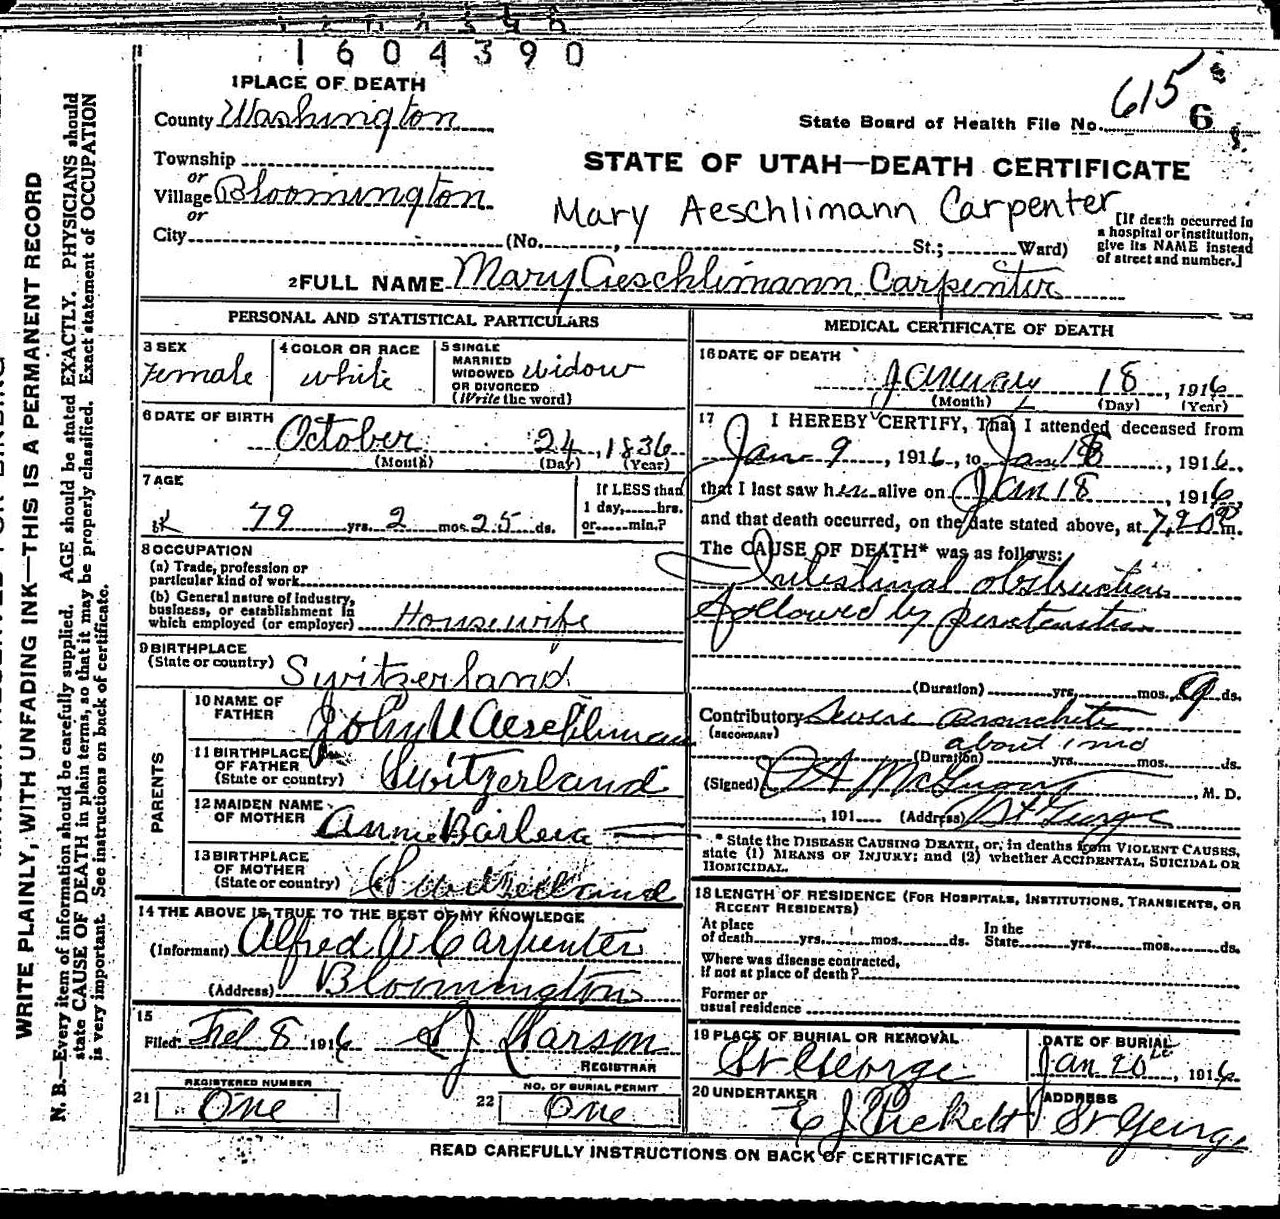 1604390
1 PLACE OF DEATH
County Washington
State Board of Health File No. 615 6
Township
or
Village Bloomington
or
City (No. , St.; Ward)
STATE OF UTAH—DEATH CERTIFICATE
Mary Aeschlimann Carpenter
[If death occurred in
a hospital or institution,
give its NAME instead
of street and number.]
2 FULL NAME Mary Aeschlimann Carpenter
PERSONAL AND STATISTICAL PARTICULARS
3 SEX
Female
4 COLOR OR RACE
White
5 SINGLE
MARRIED
WIDOWED
OR DIVORCED
(Write the word)
Widow
6 DATE OF BIRTH
October 24, 1836
(Month) (Day) (Year)
7 AGE
79 yrs. 2 mos. 25 ds.
If LESS than
1 day, hrs.
or min.?
8 OCCUPATION
(a) Trade, profession or
particular kind of work
(b) General nature of industry,
business, or establishment in
which employed (or employer) Housewife
9 BIRTHPLACE
(State or country) Switzerland
PARENTS
10 NAME OF
FATHER
John U Aeschliman
11 BIRTHPLACE
OF FATHER
(State or country) Switzerland
12 MAIDEN NAME
OF MOTHER
Anna Barbera
13 BIRTHPLACE
OF MOTHER
(State or country) Switzerland
14 THE ABOVE IS TRUE TO THE BEST OF MY KNOWLEDGE
(Informant) Alfred W Carpenter
(Address) Bloomington
15
Filed Feb 8 1916 Larson
REGISTRAR
21
REGISTERED NUMBER
One
22
NO. OF BURIAL PERMIT
One
MEDICAL CERTIFICATE OF DEATH
16 DATE OF DEATH
January 18, 1916
(Month) (Day) (Year)
17 I HEREBY CERTIFY, That I attended deceased from
Jan 9, 1916, to Jan 18, 1916,
that I last saw her alive on Jan 18, 1916,
and that death occurred, on the date stated above, at 7:20 P m.
The CAUSE OF DEATH* was as follows:
Intestinal obstruction
followed by
(Duration) yrs. mos. 9 ds.
Contributory Severe Bronchitis
(SECONDARY)
about 1 mo
(Duration) yrs. mos. ds.
(Signed) , M. D.
, 191 (Address) St George
* State the DISEASE CAUSING DEATH, or, in deaths from VIOLENT CAUSES,
state (1) MEANS OF INJURY; and (2) whether ACCIDENTAL, SUICIDAL OR
HOMICIDAL.
18 LENGTH OF RESIDENCE (FOR HOSPITALS, INSTITUTIONS, TRANSIENTS, OR
RECENT RESIDENTS)
At place
of death yrs. mos. ds.
In the
State yrs. mos. ds.
Where was disease contracted,
if not at place of death?
Former or
usual residence
19 PLACE OF BURIAL OR REMOVAL
St George
DATE OF BURIAL
Jan 20, 1916
20 UNDERTAKER
E J Pickett
ADDRESS
St George
READ CAREFULLY INSTRUCTIONS ON BACK OF CERTIFICATE
WRITE PLAINLY, WITH UNFADING INK—THIS IS A PERMANENT RECORD
N. B.—Every item of information should be carefully supplied. AGE should be stated EXACTLY. PHYSICIANS should
state CAUSE OF DEATH in plain terms, so that it may be properly classified. Exact statement of OCCUPATION
is very important. See instructions on back of certificate.